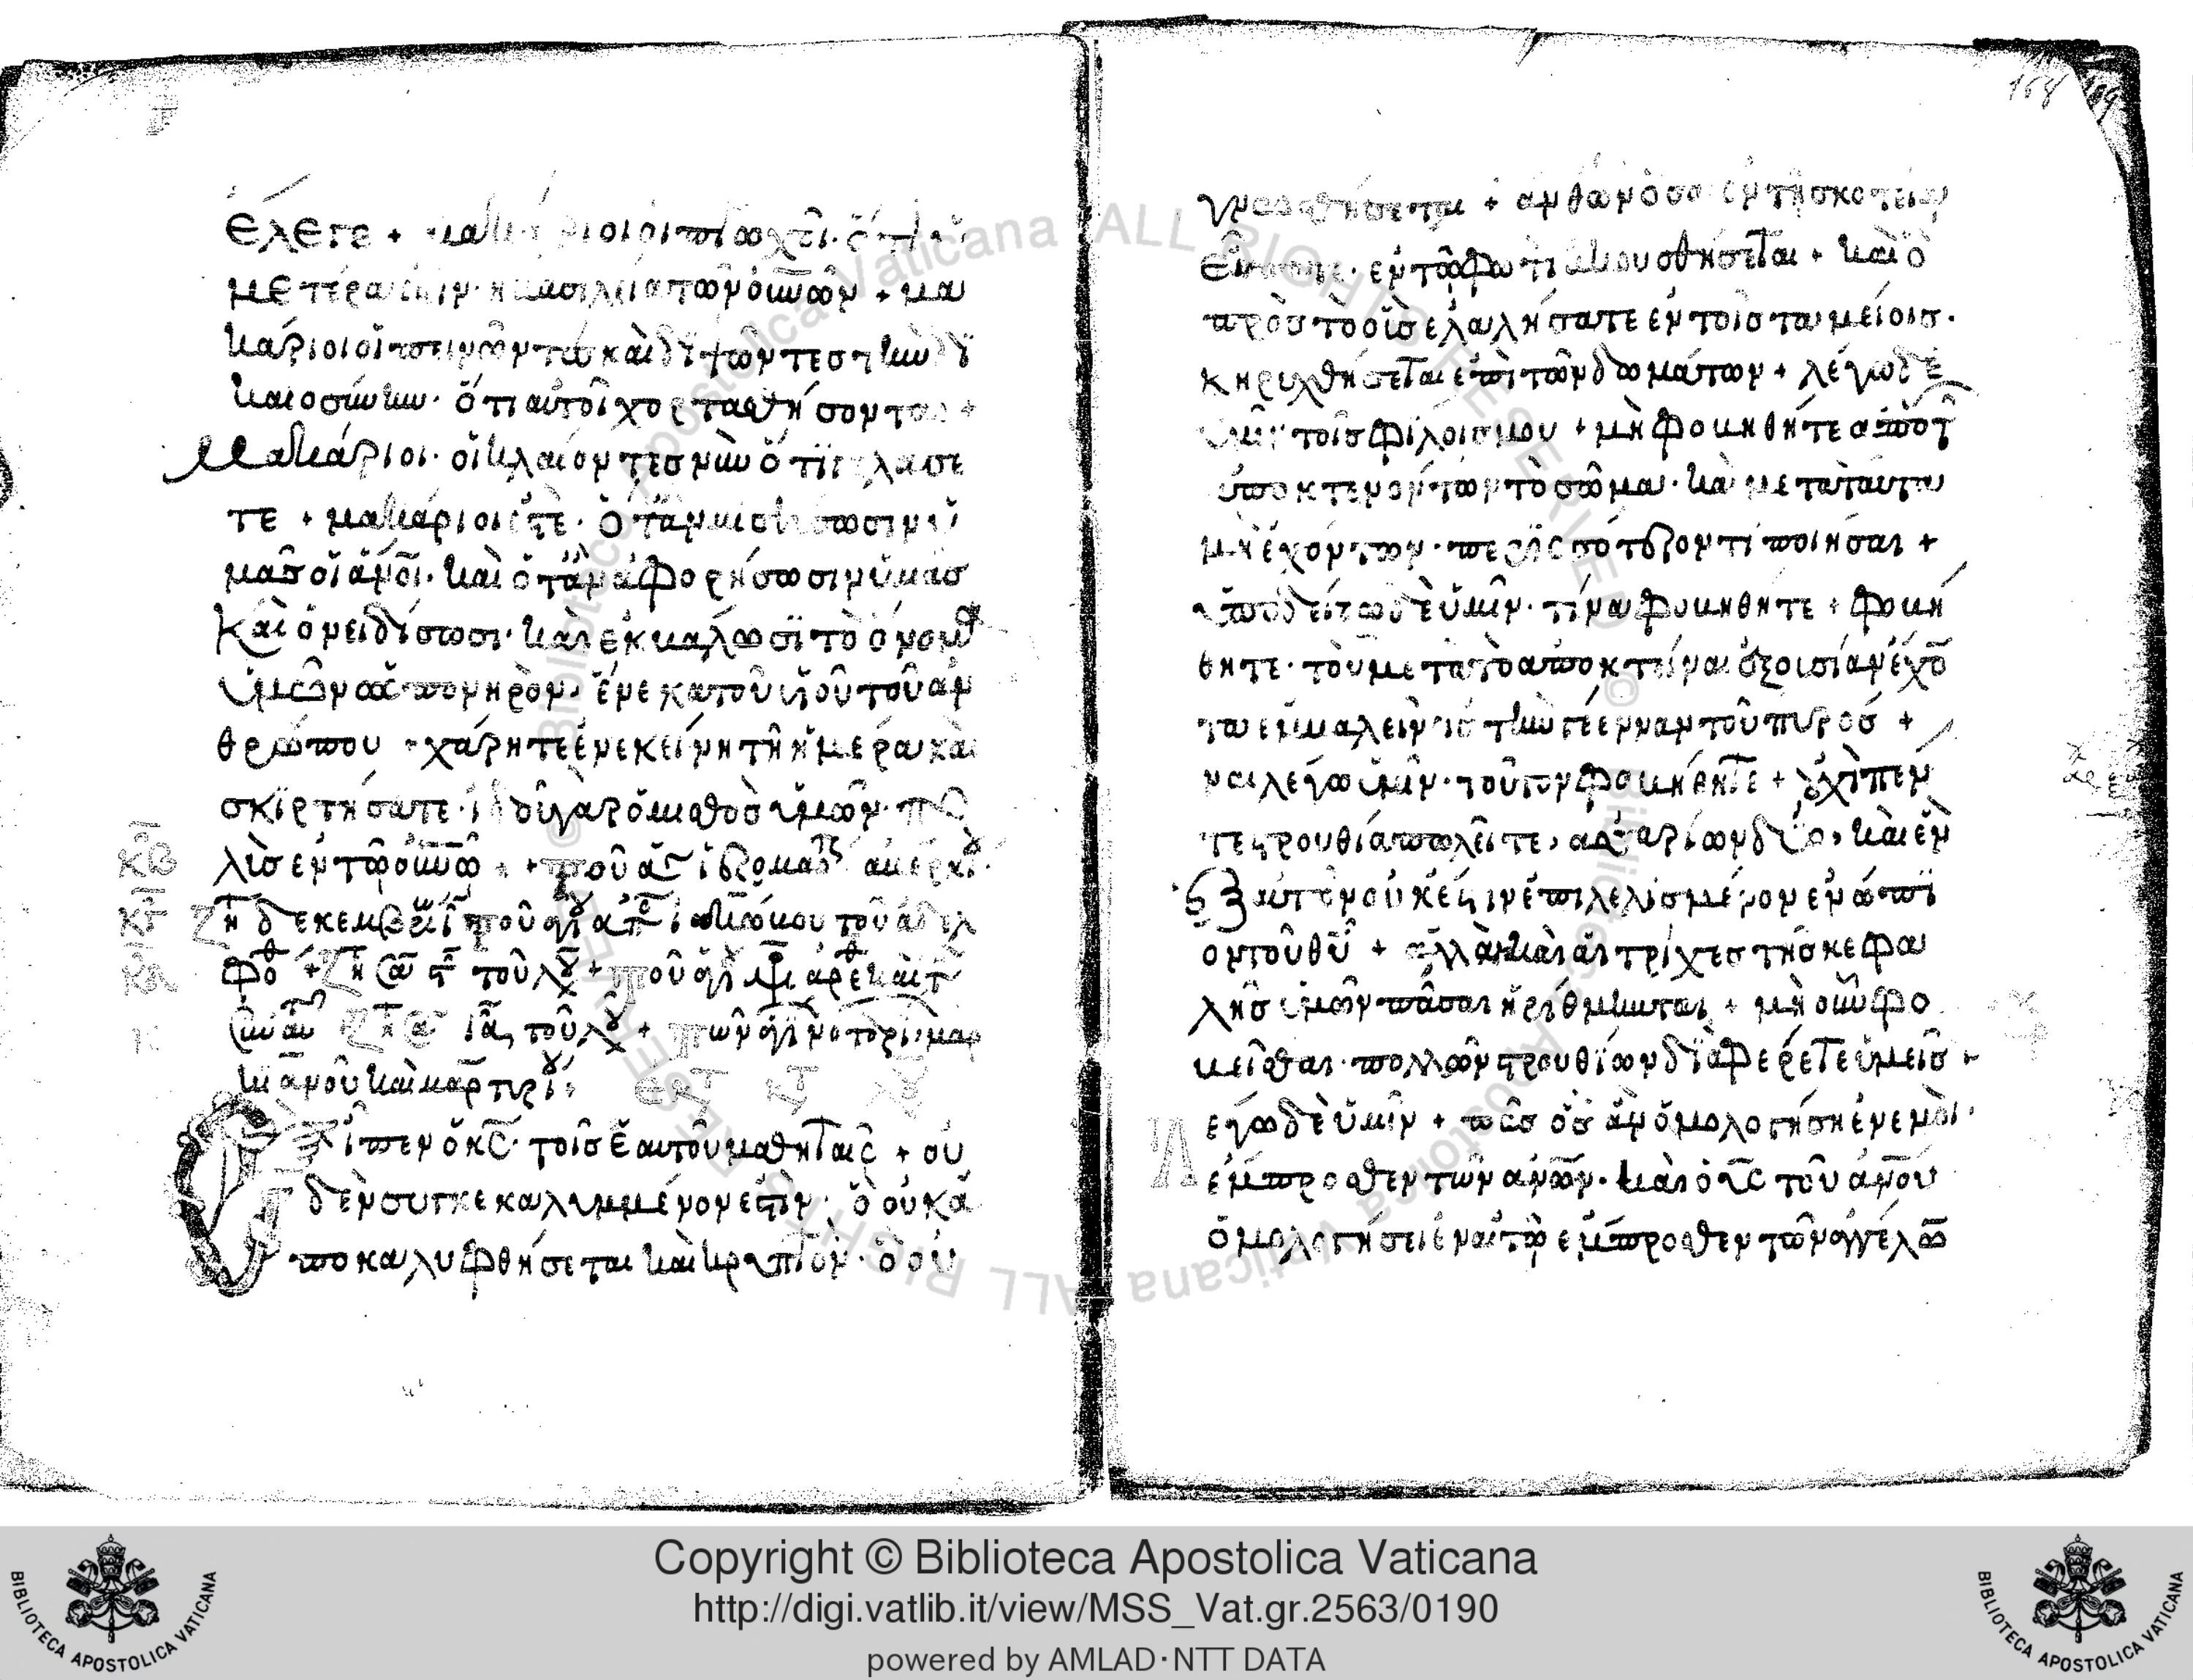 ἔλεγε + μακάριοι οἱ πτωχοὶ· ὅτι ὑ
μετέρα ἐστὶν ἡ βασιλεία τῶν οὐνῶν + μα
κάριοι οἱ πεινῶντες καὶ διψῶντες τὴν δι
καιοσύνην· ὅτι αὐτοὶ χορτασθήσονται +
Μακάριοι· οἱ κλαίοντες νῦν ὅτι γελάσε
τε + μακάριοί ἐστε· ὅταν μισήσωσιν ὑ
μᾶς οἱ ἄνοι· καὶ ὅταν ἀφορήσωσιν ὑμᾶς
καὶ ὀνειδίσωσι· καὶ ἐκβάλωσι τὸ ὄνομα
ὑμῶν ὡς πονηρὸν· ἕνεκα τοῦ υἱοῦ τοῦ ἀν
θρώπου · χάρητε ἐν ἐκείνη τῆ ἡμέρα καὶ
σκιρτήσατε· ἰδοὺ γὰρ ὁ μισθὸς ὑμῶν πο
λὺς ἐν τῶ οὐνῶ +
δεκεμβρί τοῦ ἁγ ἀπ ἰακώβου τοῦ ἀδελ
φο + τοῦ λγ +
τοῦ λγ +
Εἶπεν ὁ κς· τοῖς ἑαυτοῦ μαθηταῖς + οὐ
δὲν συγκεκαλυμμένον ἐστὶν· ὃ οὐκ ἀ
ποκαλυφθήσεται καὶ κρυπτὸν· ὃ οὐ
γνωσθήσεται + ἀνθῶν ὅσα ἐν τῆ σκοτεία
εἴπατε· ἐν τῶ φωτὶ ἀκουσθήσεται + καὶ ὃ
πρὸς τὸ οὖς ἐλαλήσατε ἐν τοῖς ταμείοις·
κηρυχθήσεται ἐπὶ τῶν δωμάτων + λέγω δὲ
ὑμῖν τοῖς φίλοις μου + μὴ φοβηθῆτε ἀπὸ τ
ἀποκτενόντων τὸ σῶμα· καὶ μετὰ ταῦτα
μὴ ἐχόντων· περισσότερόν τι ποιῆσαι +
ὑποδείξω δὲ ὑμῖν· τίνα φοβηθῆτε + φοβή
θητε· τὸν μετὰ τὸ ἀποκτεῖναι ἐξουσίαν ἔχο
τα ἐμβαλεῖν εἰς τὴν γέενναν τοῦ πυρός +
ναὶ λέγω ὑμῖν· τοῦτον φοβήθητε + οὐχὶ πέν
τε στρουθία πωλεῖτε, ἀσσαρίων δύο, καὶ ἓν
ἐξ αὐτῶν οὐκ ἔστιν ἐπιλελισμένον ἐνώπι
ον τοῦ θυ + ἀλλὰ καὶ αἱ τρίχες τῆς κεφα
λῆς ὑμῶν πᾶσαι ἠρίθμηνται + μὴ οὖν φο
βεῖσθαι· πολλῶν στρουθίων διαφέρετε ὑμεῖς +
λέγω δὲ ὑμῖν + πᾶς ὃς ἂν ὁμολογήση ἐν ἐμοὶ·
ἔμπροσθεν τῶν ἀνων· καὶ ὁ υς τοῦ ἀνου
ὁμολογήσει ἐν αὐτῶ ἔμπροσθεν τῶν ἀγγέλω
Copyright © Biblioteca Apostolica Vaticana
http://digi.vatlib.it/view/MSS_Vat.gr.2563/0190
powered by AMLAD·NTT DATA